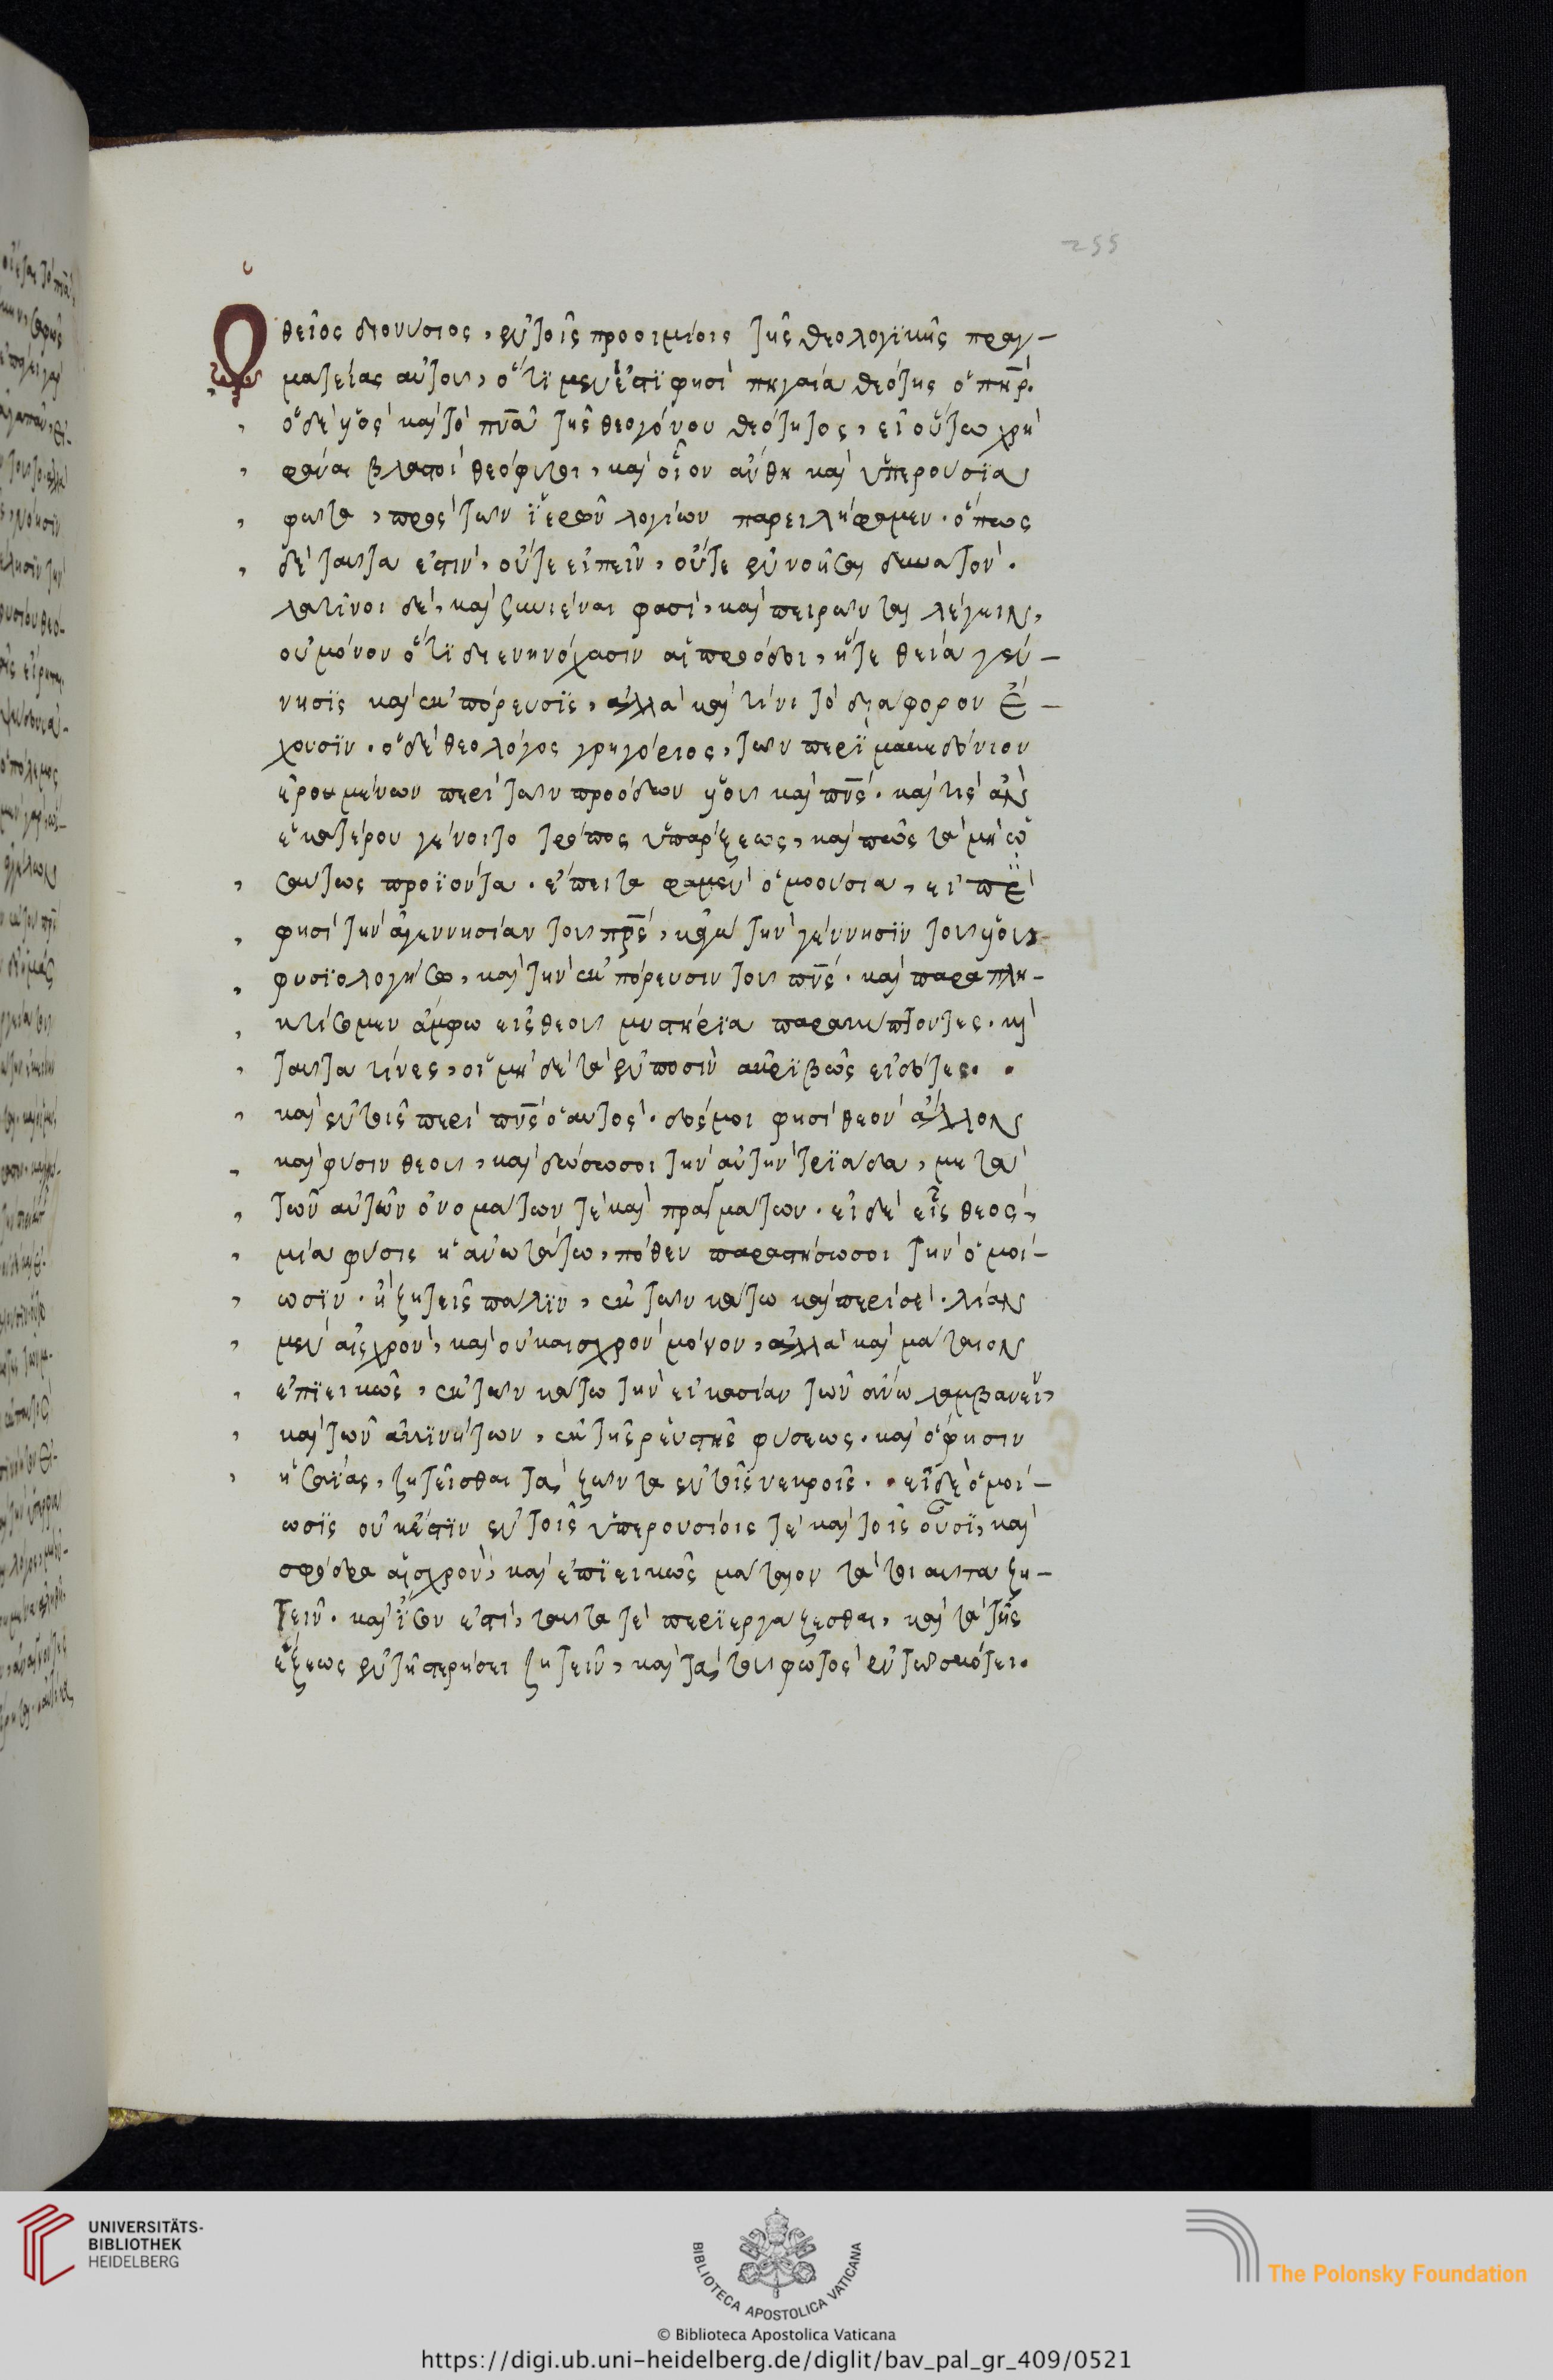 255
Ὁ θεῖος διονύσιος, ἐν τοῖς προοιμίοις τῆς θεολογϊκῆς πραγ-
ματείας αὐτοῦ, ὅτϊ μὲν ἐστϊ φησὶ πηγαία θεότης ὁ πηρ̅.
ὁ δὲ υἱὸς καὶ τὸ πν̅α τῆς θεογόνου θεότητος, εἰ οὕτω χρὴ
φάναι βλαστοὶ θεόφυτοι, καὶ οἷον ἄνθη καὶ ὑπερουσϊα
φῶτα, πρὸς τῶν ϊερῶν λογίων παρειλήφαμεν. ὅπως
δὲ ταῦτα ἐστιν, οὔτε εἰπεῖν, οὔτε ἐννοῆσαι δυνατόν.
λατῖνοι δὲ, καὶ ξυνιέναι φασὶ, καὶ πειρῶνται λέγειν,
οὐ μόνον ὅτϊ διενηνόχασιν αἱ πρόοδοι, ἥτε θεία γέν-
νησϊς καὶ ἐκπόρευσϊς, ἀλλὰ καὶ τίνι τὸ διάφορον ἔ-
χουσϊν. ὁ δὲ θεολόγος γρηγόριος, τῶν περϊ μακεδόνιον
ἐρομένων περὶ τῶν προόδων υἱοῦ καὶ πν̅ς. καὶ τίς ἂν
ἑκατέρου γένοιτο τρόπος ὑπάρξεως, καὶ πῶς τὰ μὴ ὡ
σαύτως προϊόντα. ἔπειτα φαμὲν ὁμοούσια, εἰπὲ
φησὶ τὴν ἀγεννησίαν τοῦ πρ̅ς, κᾀγὼ τὴν γέννησϊν τοῦ υἱοῦ
φυσϊολογήσω, καὶ τὴν ἐκπόρευσιν τοῦ πν̅ς. καὶ παραπλη-
κτίσομεν ἄμφω εἰς θεοῦ μυστήρϊα παρακύπτοντες. καὶ
ταῦτα τίνες, οἱ μὴ δὲ τὰ ἐν ποσὶν ἀκρϊβῶς εἰδότες.
καὶ ἐν τοῖς περὶ πν̅ς ὁ αὐτὸς. δός μοι φησὶ θεὸν ἄλλον
καὶ φύσιν θεοῦ, καὶ δώσω σοι τὴν αὐτὴν τρϊάδα, μετὰ
τῶν αὐτῶν ὀνομάτων τὲ καὶ πραγμάτων. εἰ δὲ εἷς θεὸς,
μία φύσις ἡ ἀνωτάτω, πόθεν παραστήσω σοι τὴν ὁμοί-
ωσϊν. ἢ ζητεῖς πάλϊν, ἐκ τῶν κάτω καὶ περὶ σὲ. λίαν
μὲν αἰσχρὸν, καὶ οὐκ αἰσχρὸν μόνον, ἀλλὰ καὶ μάταιον
ἐπϊεικῶς, ἐκ τῶν κάτω τὴν εἰκασίαν τῶν ἄνω λαμβάνειν,
καὶ τῶν ἀκϊνήτων, ἐκ τῆς ῥευστῆς φύσεως. καὶ ὅ φησιν
ἡσαϊας, ζητεῖσθαι τὰ ζῶντα ἐν τοῖς νεκροῖς. εἰ δὲ ὁμοί-
ωσϊς οὐκ ἔστϊν ἐν τοῖς ὑπερουσίοις τὲ καὶ τοῖς οὖσϊ, καὶ
σφόδρα αἰσχρὸν, καὶ ἐπϊεικῶς μάταιον τὰ τοιαῦτα ζη-
τεῖν. καὶ ἴσον ἐστὶ, ταῦτα τὲ περϊεργάζεσθαι, καὶ τὰ τῆς
ἕξεως ἐν τῇ στερήσει ζητεῖν, καὶ τὰ τοῦ φωτὸς ἐν τῷ σκότει.
UNIVERSITÄTS-
BIBLIOTHEK
HEIDELBERG
BIBLIOTECA APOSTOLICA VATICANA
The Polonsky Foundation
© Biblioteca Apostolica Vaticana
https://digi.ub.uni-heidelberg.de/diglit/bav_pal_gr_409/0521